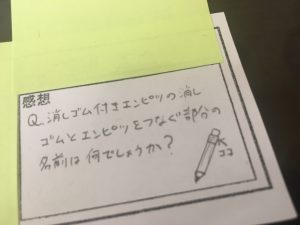 感想
Q.消しゴム付きエンピツの消し
ゴムとエンピツをつなぐ部分の
名前は何でしょうか?
ココ